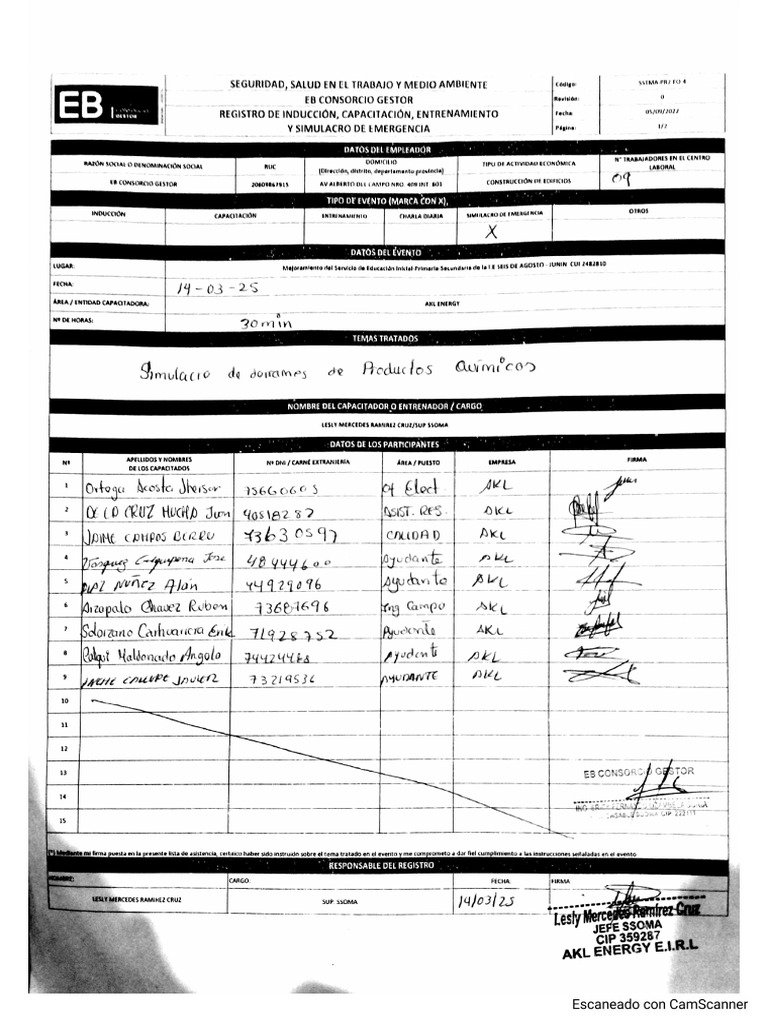 EB CONSORCIO GESTOR
SEGURIDAD, SALUD EN EL TRABAJO Y MEDIO AMBIENTE
EB CONSORCIO GESTOR
REGISTRO DE INDUCCIÓN, CAPACITACIÓN, ENTRENAMIENTO
Y SIMULACRO DE EMERGENCIA
Código:
Revisión: 0
Fecha: 05/09/2022
Página: 1/2
DATOS DEL EMPLEADOR
RAZÓN SOCIAL O DENOMINACIÓN SOCIAL RUC DOMICILIO (Dirección, distrito, departamento provincia) TIPO DE ACTIVIDAD ECONÓMICA N° TRABAJADORES EN EL CENTRO LABORAL
EB CONSORCIO GESTOR AV ALBERTO DEL CAMPO NRO. 409 INT. 801 CONSTRUCCIÓN DE EDIFICIOS 09
TIPO DE EVENTO (MARCA CON X),
INDUCCIÓN CAPACITACIÓN ENTRENAMIENTO CHARLA DIARIA SIMULACRO DE EMERGENCIA OTROS
X
DATOS DEL EVENTO
LUGAR: Mejoramiento del Servicio de Educación Inicial Primaria Secundaria de la I E SEIS DE AGOSTO - JUNIN CUI 2482810
FECHA: 14-03-25
ÁREA / ENTIDAD CAPACITADORA: AKL ENERGY
Nº DE HORAS: 30 min
TEMAS TRATADOS
Simulacro de derrames de Productos Químicos
NOMBRE DEL CAPACITADOR O ENTRENADOR / CARGO
LESLY MERCEDES RAMIREZ CRUZ/SUP SSOMA
DATOS DE LOS PARTICIPANTES
Nº APELLIDOS Y NOMBRES DE LOS CAPACITADOS Nº DNI / CARNÉ EXTRANJERÍA ÁREA / PUESTO EMPRESA FIRMA
1 Ortega Acosta Jheison 75660605 Of Elect AKL
2 DE LA CRUZ MUCHA Juan 40518287 ASIST. RES. AKL
3 JAIME CAMPOS 73630597 CALIDAD AKL
4 Vasquez Jose 48444600 Ayudante AKL
5 NUÑEZ Alan 44929096 Ayudante AKL
6 Arzapalo Chavez Ruben 73687696 Ing Campo AKL
7 Solorzano 71928752 Ayudante AKL
8 Maldonado Angelo 74424468 Ayudante AKL
9 JAVIER 73219536 AYUDANTE AKL
10
11
12
13
14
15
EB CONSORCIO GESTOR
(*) Mediante mi firma puesta en la presente lista de asistencia, certifico haber sido instruido sobre el tema tratado en el evento y me comprometo a dar fiel cumplimiento a las instrucciones señaladas en el evento
RESPONSABLE DEL REGISTRO
NOMBRE: CARGO FECHA FIRMA
LESLY MERCEDES RAMIREZ CRUZ SUP. SSOMA 14/03/25
Lesly Mercedes Ramírez Cruz
JEFE SSOMA
CIP 359287
AKL ENERGY E.I.R.L
Escaneado con CamScanner